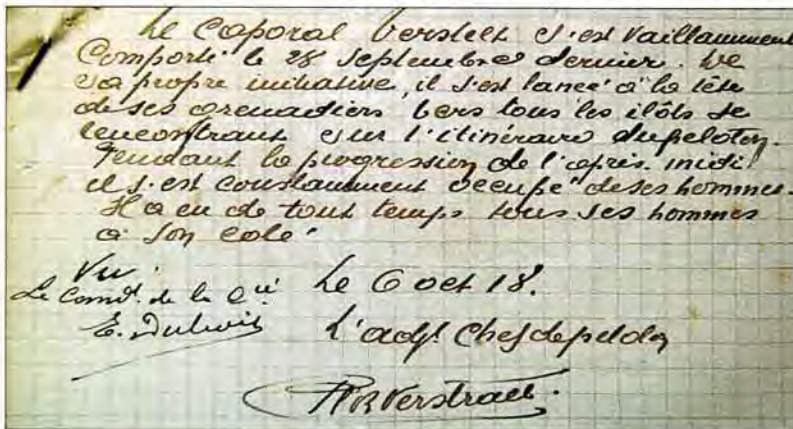 Le caporal Verstelt s'est vaillamment
Comporté le 28 septembre dernier. De
sa propre initiative, il s'est lancé à la tête
de ses grenadiers vers tous les ilôts se
rencontrant sur l'itinéraire du peloton.
Pendant la progression de l'après-midi
il s'est constamment occupé de ses hommes.
Il a eu de tout temps tous ses hommes
à son côté.
Vu.
Le Comdt. de la Cie
Le 6 oct 18.
L'adjt Chef de peloton
Verstraete.